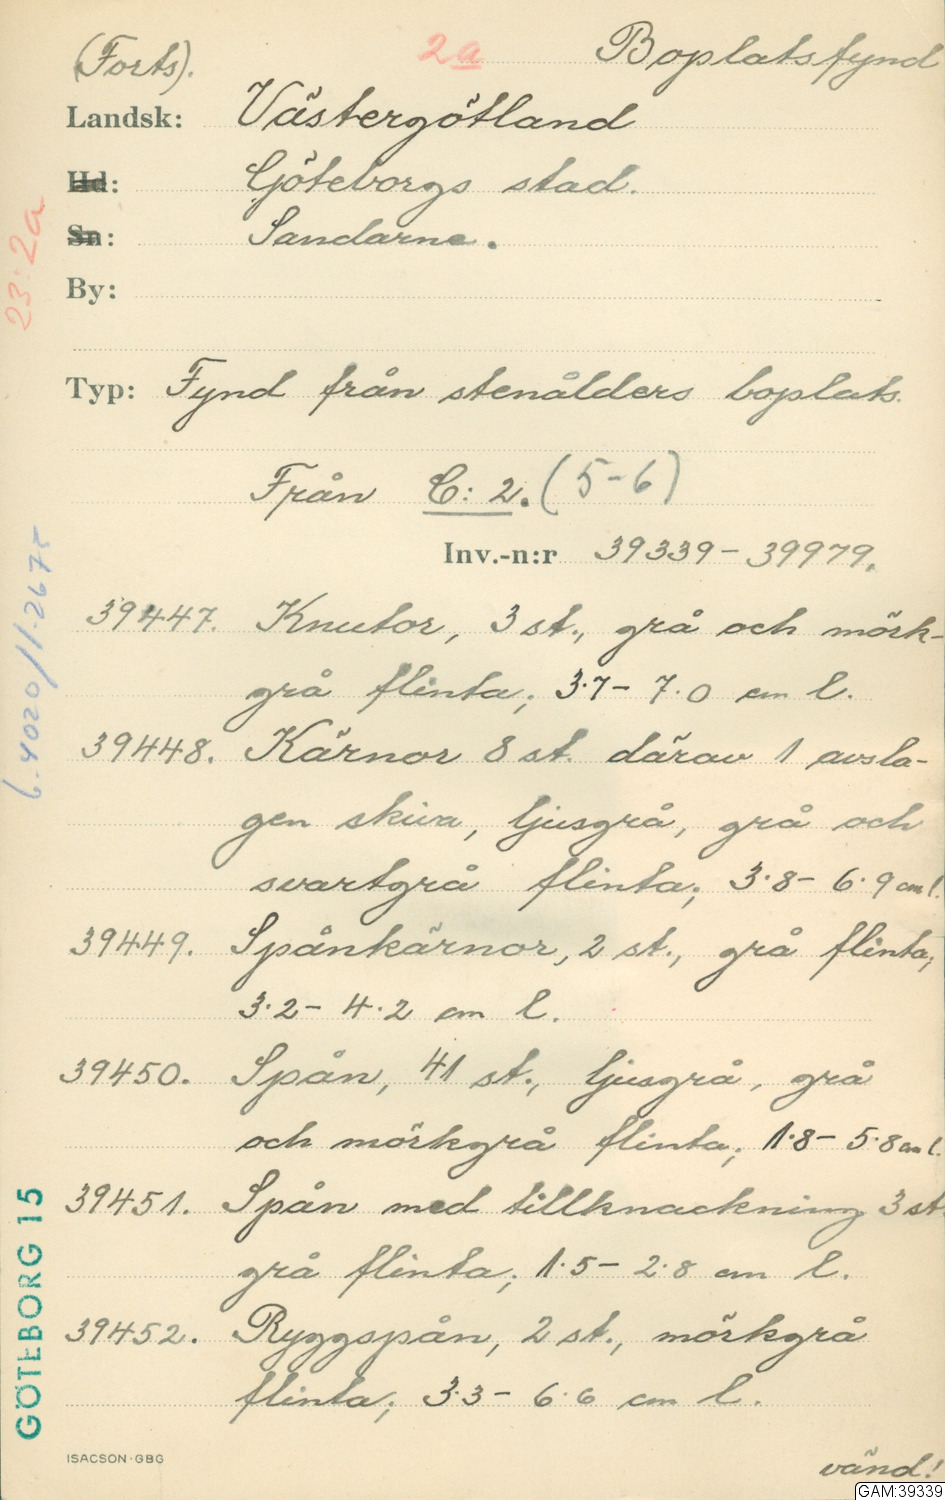 (Forts).
2a
Boplatsfynd
Landsk: Västergötland
Hd: Göteborgs stad.
Sn: Sandarne.
By:
Typ: Fynd från stenålders boplats.
Från C: 2. (5-6)
Inv.-n:r 39339-39979.
39447. Knutor, 3 st., grå och mörk-
grå flinta; 3.7- 7.0 cm l.
39448. Kärnor 8 st. därav 1 avsla-
gen skiva, ljusgrå, grå och
svartgrå flinta; 3.8- 6.9 cm l.
39449. Spånkärnor, 2 st., grå flinta;
3.2- 4.2 cm l.
39450. Spån, 41 st., ljusgrå, grå
och mörkgrå flinta; 1.8- 5.8 cm l.
39451. Spån med tillknackning 3 st
grå flinta; 1.5- 2.8 cm l.
39452. Ryggspån, 2 st., mörkgrå
flinta; 3.3- 6.6 cm l.
vänd!
23:2a
6.4020/1-2675
GÖTEBORG 15
ISACSON·GBG
GAM:39339